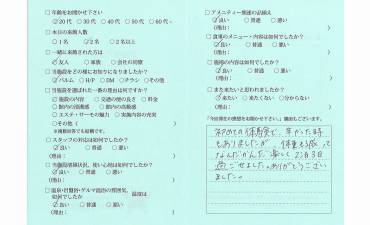 □ 年齢をお聞かせ下さい
☑20代 ○30代 ○40代 ○50代 ○60代~
□ 本日の来館人数
○1名 ☑2名 ○2名以上
□ 一緒に来館された方は
☑友人 ○家族 ○会社の同僚
□ 当施設をどの様にお知りになりましたか?
☑パルム ○H/P ○DM ○チラシ ○その他
□ 当施設を選ばれた一番の理由は何ですか?
☑施設の内容 ○交通の便の良さ ○料金
○館内の清潔感 ○館内の雰囲気
○エステ・サービスの魅力 ○岩盤浴の充実
○その他 ( )
□ スタッフの対応は如何でしたか?
☑良い ○普通 ○悪い
(理由: )
□ 当施設清掃状況、使い心地は如何でしたか?
☑良い ○普通 ○悪い
(理由: )
如何でしたか
○良い ○普通 ○悪い
(理由: )
□ アメニティー関連の品揃え
☑良い ○普通 ○悪い
(理由: )
□ 食事のメニュー・内容は如何でしたか?
○良い ○普通 ○悪い
(理由: )
□ 施設の内容は如何でしたか?
☑良い ○普通 ○悪い
(理由: )
□ また来たいと思われましたか?
☑来たい ○来たくない ○分からない
(理由: )
初めての体験で、辛かった時
もありましたが、体重も減って
なんだかんだ楽しく2泊3日
過ごせました。ありがとうござい
ました。